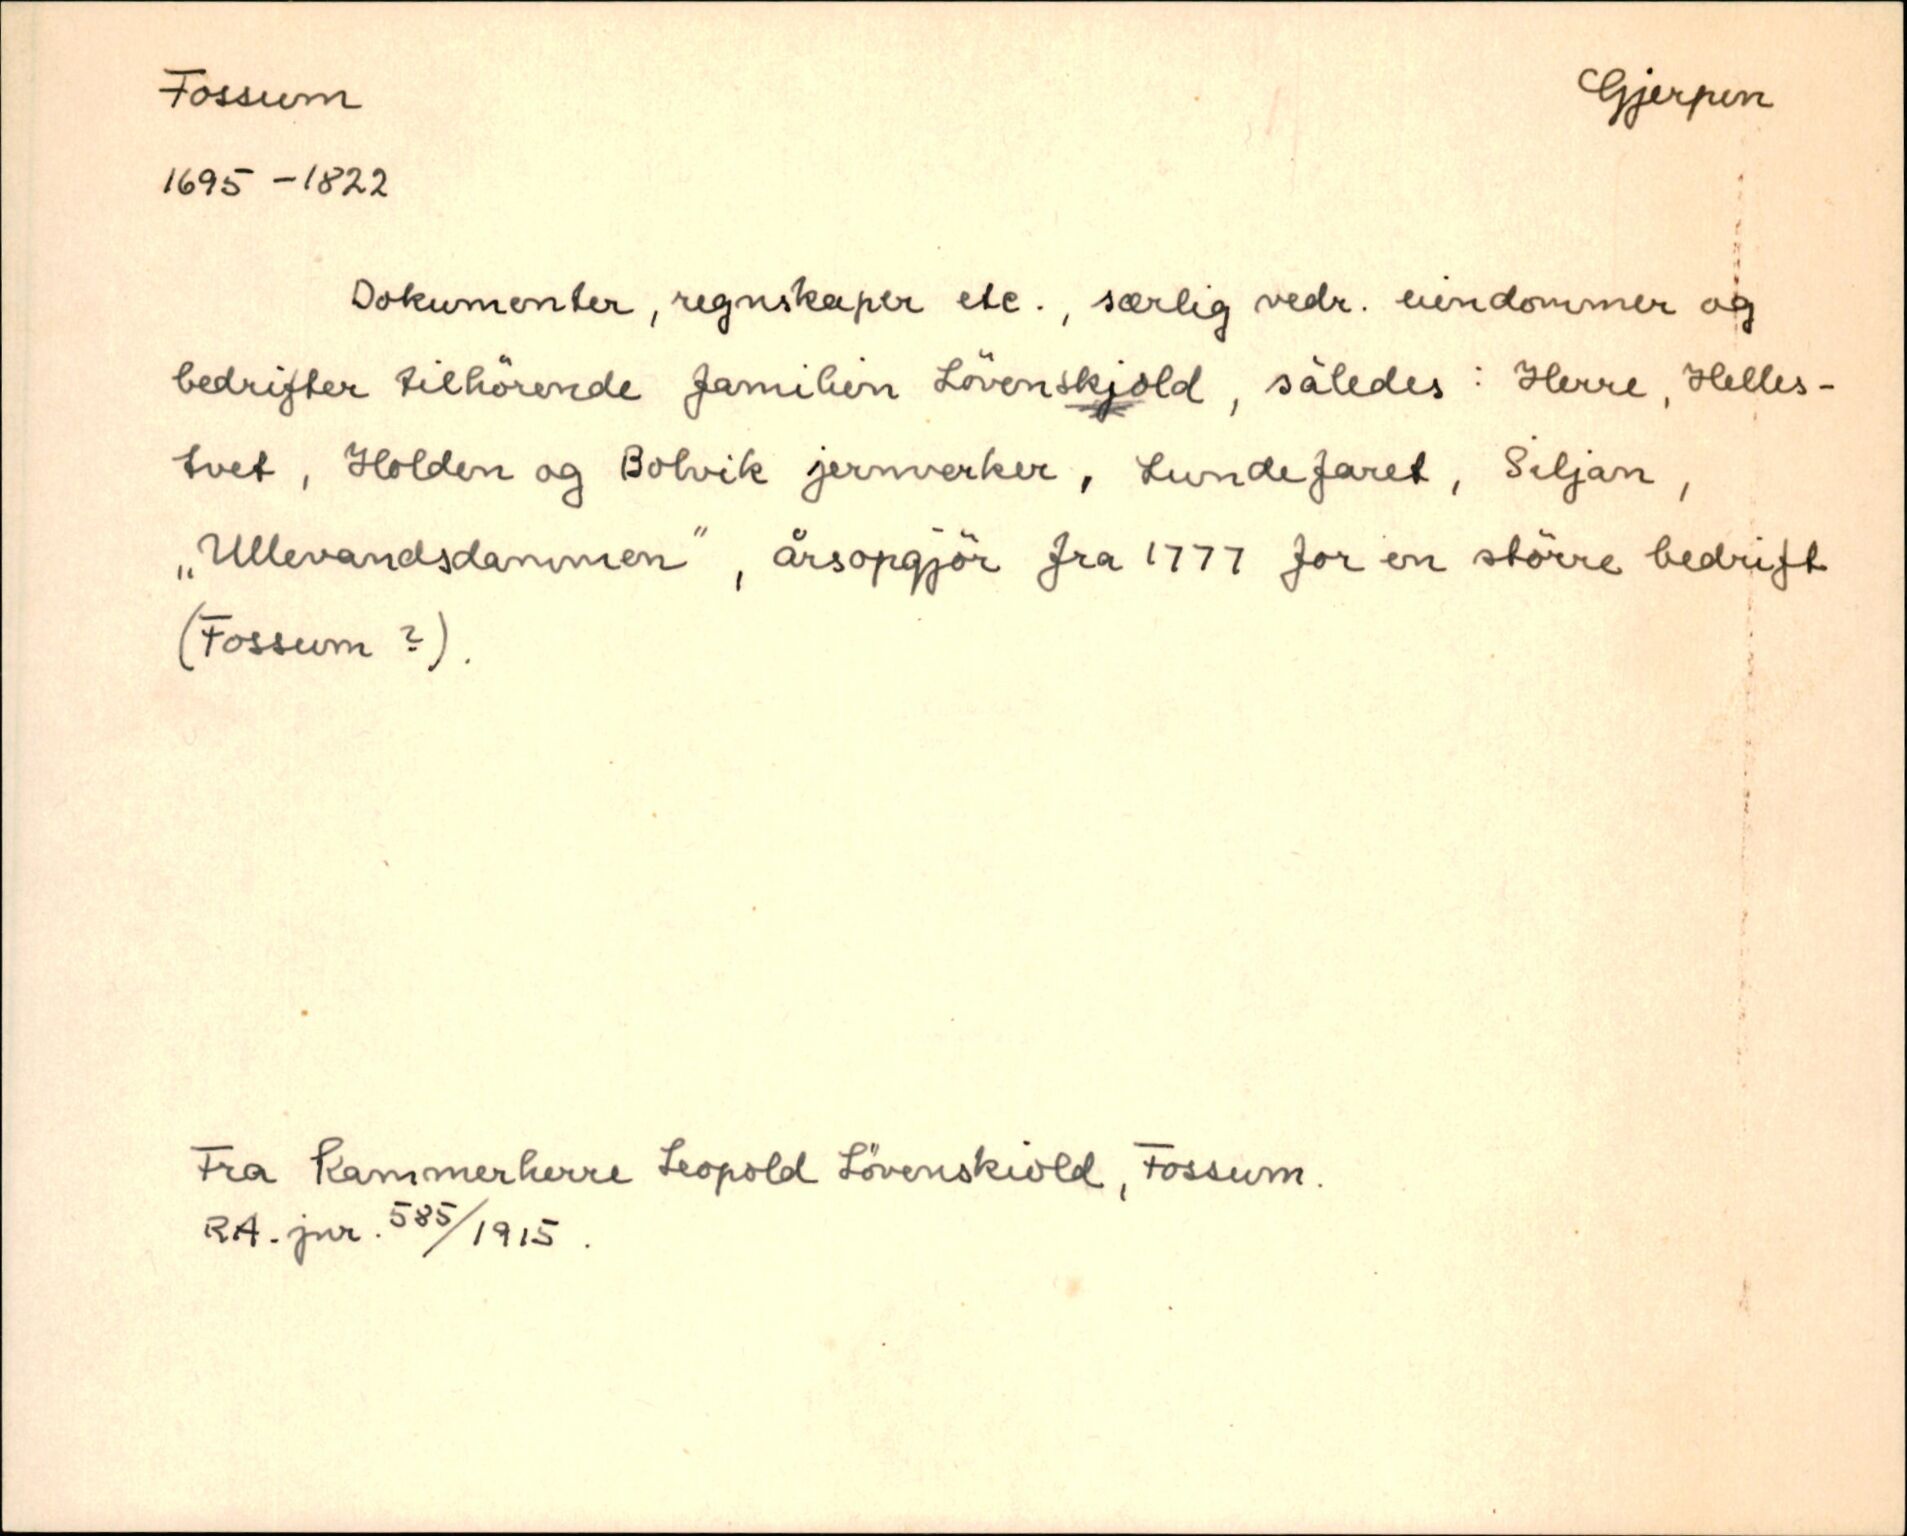 Fossum Gjerpen
1695 - 1822
Dokumenter, regnskaper etc., særlig vedr. eiendommer og
bedrifter tilhörende familien Lövenskjold, således : Herre, Helles-
tvet, Holden og Bolvik jernverker, Lundefaret, Siljan,
„Ullevandsdammen”, årsopgjör fra 1777 for en större bedrift
(Fossum ?).
Fra Kammerherre Leopold Lövenskiold, Fossum.
RA. jnr. 585/1915.